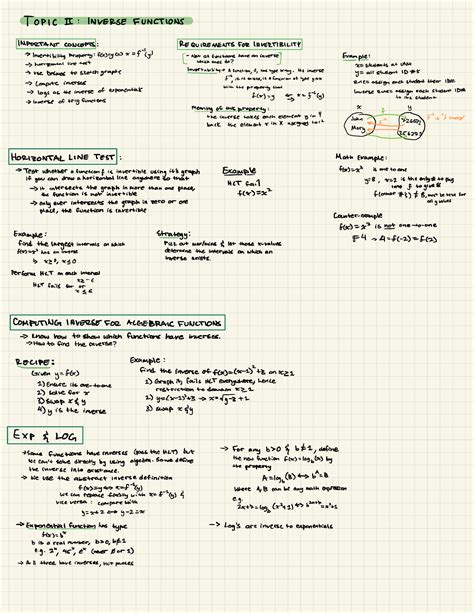 TOPIC II: INVERSE FUNCTIONS
IMPORTANT CONCEPTS:
→ Invertibility Property: f(x)=y ⟺ x=f⁻¹(y)
→ horizontal line test
→ use inverses to sketch graphs
→ Compute inverses
→ logs as the inverse of exponentials
→ Inverse of trig functions
REQUIREMENTS FOR INVERTIBILITY
- Not all functions have an inverse
which ones do?
Invertibility: A function f, has type
with the property that
f(x)=y ⟺ x=f⁻¹(y)
Meaning of this property:
the inverse takes each element y in Y
back the element x in X assigned to it
Example:
x= students at
y= all student ID #s
f assign each student their ID#
Inverse f assign each student ID#
to its student
x y
John
Mary
HORIZONTAL LINE TEST:
→ Test whether a function f is invertible using its graph
if you can draw a horizontal line anywhere so that
→ it intersects the graph in more than one place,
the function is not invertible
→ only ever intersects the graph in zero or one
place, the function is invertible
Example
HLT fail
f(x)=x²
Math Example:
f(x)=x³ is one to one
y=8, x=2 is the only # to put
into f to give 8
f(other #) ≠ 8, must be true for
all y values
Counter-example
f(x)=x² is not one-to-one
→ 4=f(-2)=f(2)
Example:
find the largest intervals on which
f(x)=x² has an inverse
↳ x≥0, x≤0
Perform HLT on each interval
HLT fails for or
x≤
Strategy:
Pick out max/mins & let those x-values
determine the intervals on which an
inverse exists.
COMPUTING INVERSE FOR ALGEBRAIC FUNCTIONS
→ Know how to show which functions have inverses.
→ How to find the inverse?
RECIPE:
Given y=f(x)
1) Ensure its one-to-one
2) solve for x
3) swap x & y
4) y is the inverse
Example:
find the inverse of f(x)=(x-1)²+3 on x≥1
1) Graph it, fails HLT everywhere, hence
restriction to domain x≥1
2) y=(x-1)²+3 → x=√y-3 +1
3) swap x & y
EXP & LOG
→ Some functions have inverses (pass the HLT) but
we can't solve directly by using algebra. Some define
the inverse into existance.
→ We use the abstract inverse definition
f(x)=y ⟺ x=f⁻¹(y)
we can replace f(x)=y with x=f⁻¹(y) &
vice versa: compare with
y=x+2 ⟺ x=y-2
→ Exponential function has type
f(x)=bˣ
b is a real number, b>0, b≠1
e.g. 2ˣ, eˣ (never 0 or 1)
→ All these have inverses,
→ For any b>0 & b≠1, define
the new function f(x)=log_b(x) by
the property
A=log_b(B) ⟺ bᴬ=B
where A,B can be any math expression
e.g.
→ Log's are inverse to exponentials